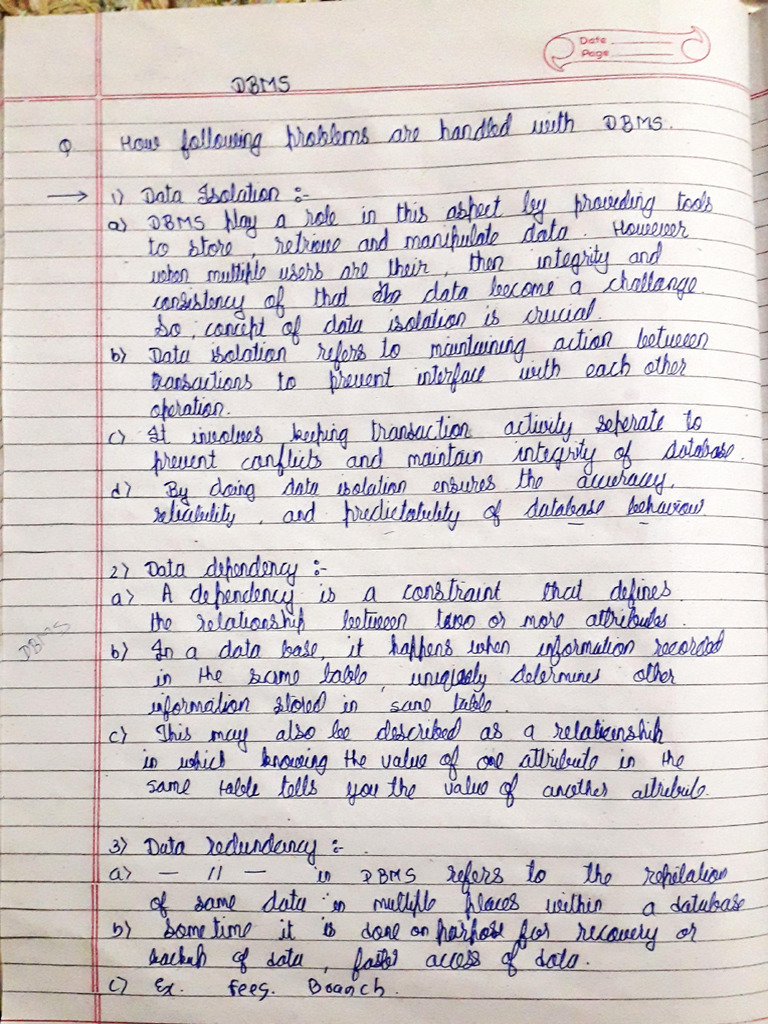 Date
Page
DBMS
Q How following problems are handled with DBMS.
→ 1) Data Isolation :-
a) DBMS play a role in this aspect by providing tools
to store, retrieve and manipulate data. However
when multiple users are their, then integrity and
consistency of that data become a challange.
So, concept of data isolation is crucial.
b) Data isolation refers to maintaining action between
transactions to prevent interface with each other
operation.
c) It involves keeping transaction activity seperate to
prevent conflicts and maintain integrity of database.
d) By doing data isolation ensures the accuracy,
reliability, and predictability of database behaviour
2) Data dependency :-
a) A dependency is a constraint that defines
the relationship between two or more attributes.
DBMS
b) In a data base, it happens when information recorded
in the same table, uniquely determines other
information stored in same table.
c) This may also be described as a relationship
in which knowing the value of one attribute in the
same table tells you the value of another attribute.
3) Data redundancy :-
a) — 11 — in DBMS refers to the repitation
of same data in multiple places within a database
b) Some time it is done on parpose for recovery or
backup of data, faster access of data.
c) Ex. fees. Branch.